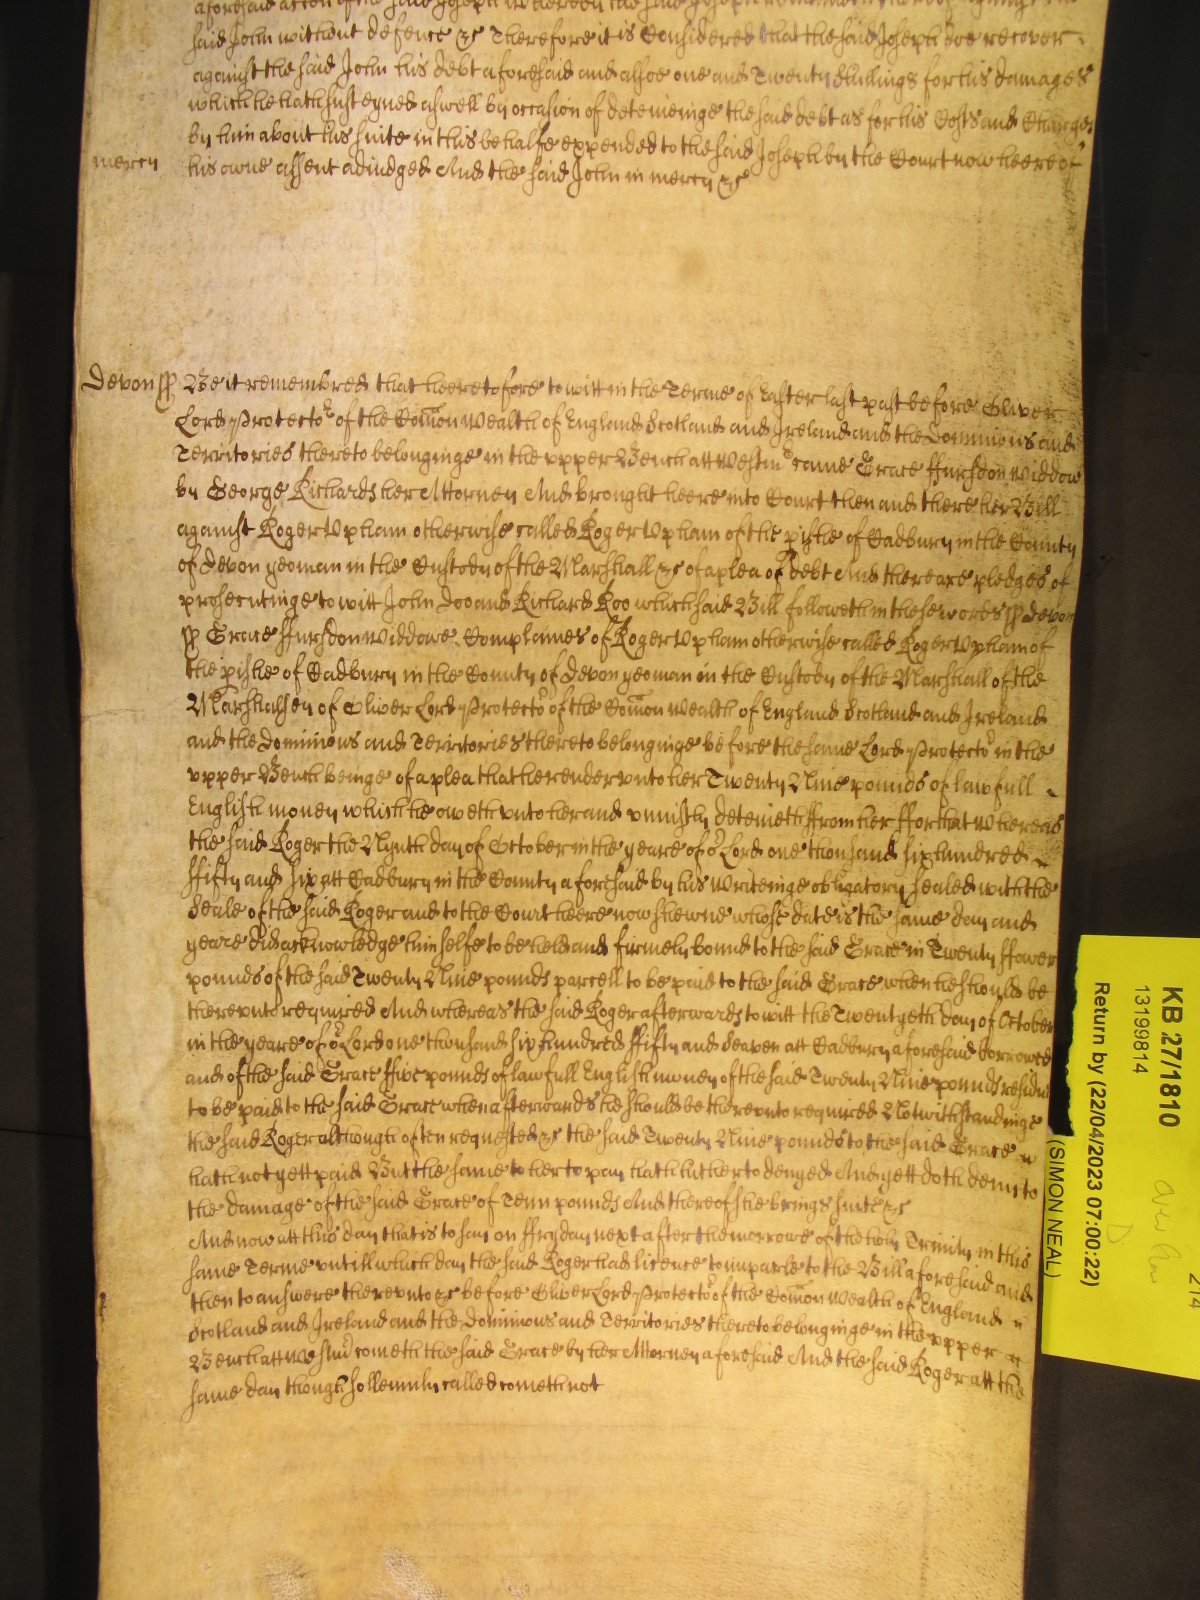 aforesaid accon of the said Joseph
said John without defence &c Therefore it is Considered that the said Joseph doe recover
against the said John his debt aforesaid and alsoe one and Twenty shillings for his damages
which he hath susteyned aswell by occasion of deteininge the said debt as for his Costs and Charges
by him about his suite in this behalfe expended to the said Joseph by the Court now heere of
mercy his owne assent adiudged And the said John in mercy &c
Devon ss Be it remembred that heeretofore to witt in the Terme of Easter last past before Oliver
Lord Protector of the Comon Wealth of England Scotland and Ireland and the Dominions and
Territories thereto belonginge in the vpper Bench att Westmr came Grace ffursdon Widdow
by George Richards her Attorney And brought heere into Court then and there her Bill
against Roger Vpham otherwise called Roger Vpham of the pishe of Cadbury in the County
of Devon yeoman in the Custody of the Marshall &c of a plea of debt And there are pledges of
prosecutinge to witt John Doo and Richard Roo which said Bill followeth in these words ss Devon
ss Grace ffursdon Widdowe Complaines of Roger Vpham otherwise called Roger Vpham of
the pishe of Cadbury in the County of Devon yeoman in the Custody of the Marshall of the
Marshalsey of Oliver Lord Protector of the Comon Wealth of England Scotland and Ireland
and the Dominions and Territories thereto belonginge before the same Lord Protector in the
vpper Bench beinge of a plea that he render vnto her Twenty Nine pounds of lawfull
English money which he oweth vnto her and vniustly deteineth ffrom her ffor that Whereas
the said Roger the Nynth day of October in the yeare of or Lord one thousand six hundred
ffifty and six att Cadbury in the County aforesaid by his Writeinge obligatory sealed with the
Seale of the said Roger and to the Court heere now shewne whose date is the same day and
yeare did acknowledge himselfe to be held and firmely bound to the said Grace in Twenty ffower
pounds of the said Twenty Nine pounds parcell to be paid to the said Grace when he should be
therevnto required And whereas the said Roger afterwards to witt the Twentyeth day of October
in the yeare of or Lord one thousand six hundred ffifty and Seaven att Cadbury aforesaid borrowed
and of the said Grace ffive pounds of lawfull English money of the said Twenty Nine pounds residue
to be paid to the said Grace when afterwards he should be therevnto required Notwithstandinge
the said Roger although often requested &c the said Twenty Nine pounds to the said Grace
hath not yett paid But the same to her to pay hath hitherto denyed And yett doth deny to
the damage of the said Grace of Tenn pounds And thereof she brings suite &c
And now att this day that is to say on ffryday next after the morrowe of the holy Trinity in this
same Terme vntill which day the said Roger had licence to imparle to the Bill aforesaid and
then to answere therevnto &c before Oliver Lord Protector of the Comon Wealth of England
Scotland and Ireland and the Dominions and Territories thereto belonginge in the vpper
Bench att Westmr cometh the said Grace by her Attorney aforesaid And the said Roger att the
same day though sollemnly called cometh not
KB 27/1810
13199814
Return by (22/04/2023 07:00:22)
(SIMON NEAL)
214